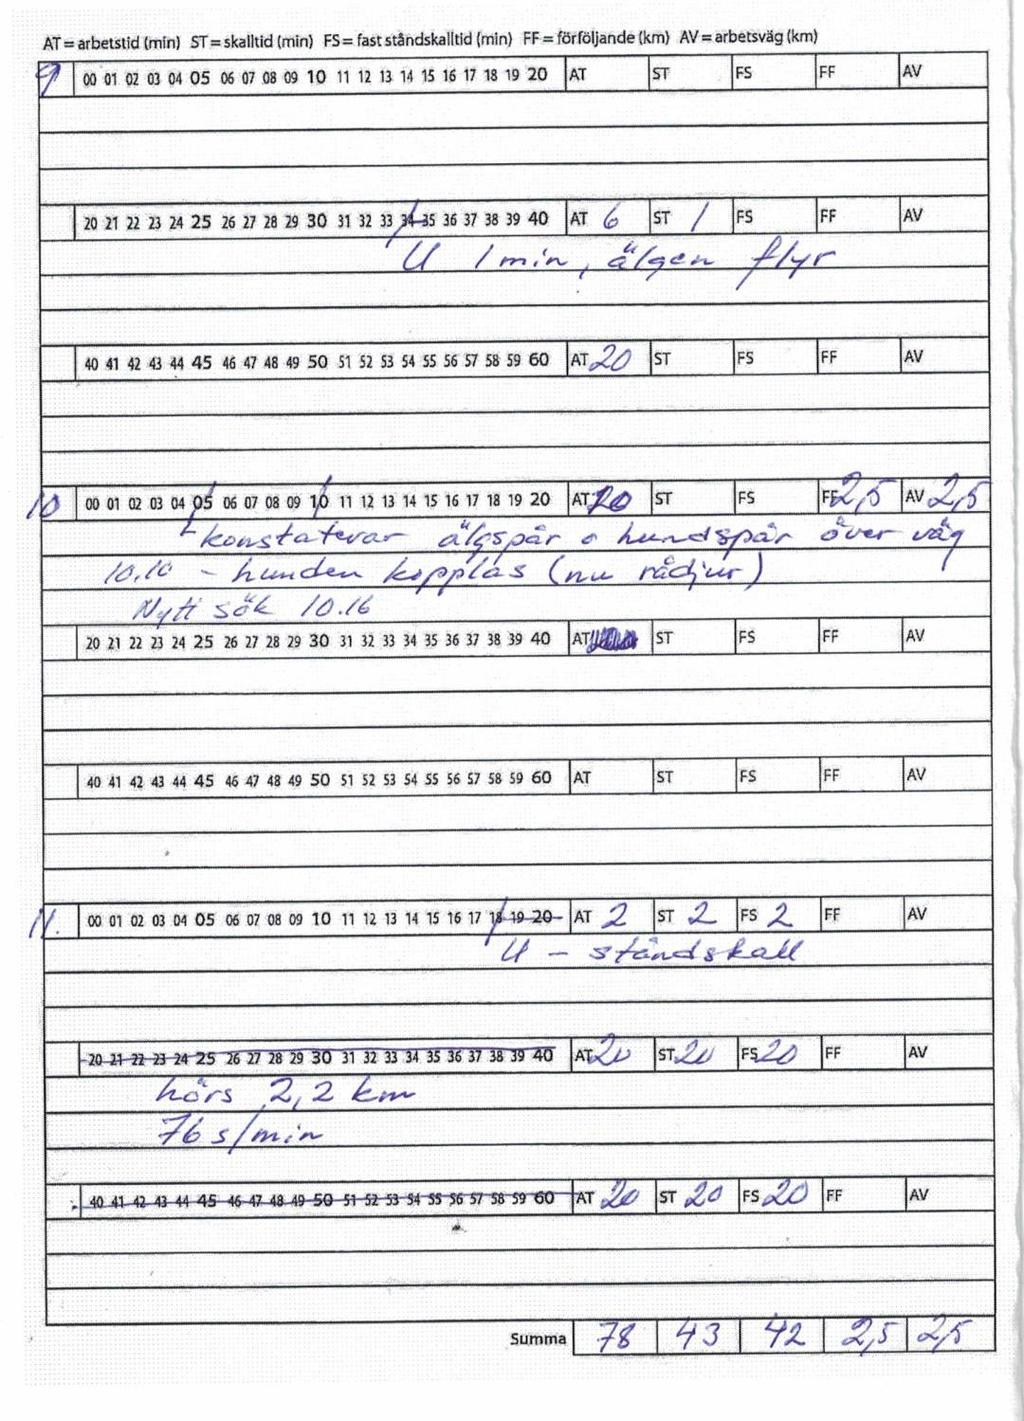 AT = arbetstid (min) ST = skalltid (min) FS = fast ståndskalltid (min) FF = förföljande (km) AV = arbetsväg (km)
9 00 01 02 03 04 05 06 07 08 09 10 11 12 13 14 15 16 17 18 19 20 AT ST FS FF AV
20 21 22 23 24 25 26 27 28 29 30 31 32 33 34 35 36 37 38 39 40 AT 6 ST 1 FS FF AV
U 1 min, älgen flyr
40 41 42 43 44 45 46 47 48 49 50 51 52 53 54 55 56 57 58 59 60 AT 20 ST FS FF AV
10 00 01 02 03 04 05 06 07 08 09 10 11 12 13 14 15 16 17 18 19 20 AT 20 ST FS FF 2,5 AV 2,5
konstaterar älgspår o hundspår över väg
10.10 - hunden kopplas (nu rådjur)
Nytt sök 10.16
20 21 22 23 24 25 26 27 28 29 30 31 32 33 34 35 36 37 38 39 40 AT ST FS FF AV
40 41 42 43 44 45 46 47 48 49 50 51 52 53 54 55 56 57 58 59 60 AT ST FS FF AV
11. 00 01 02 03 04 05 06 07 08 09 10 11 12 13 14 15 16 17 18 19 20 AT 2 ST 2 FS 2 FF AV
U - ståndskall
20 21 22 23 24 25 26 27 28 29 30 31 32 33 34 35 36 37 38 39 40 AT 20 ST 20 FS 20 FF AV
hörs 2,2 km
76 s/min
40 41 42 43 44 45 46 47 48 49 50 51 52 53 54 55 56 57 58 59 60 AT 20 ST 20 FS 20 FF AV
Summa 78 43 42 2,5 2,5